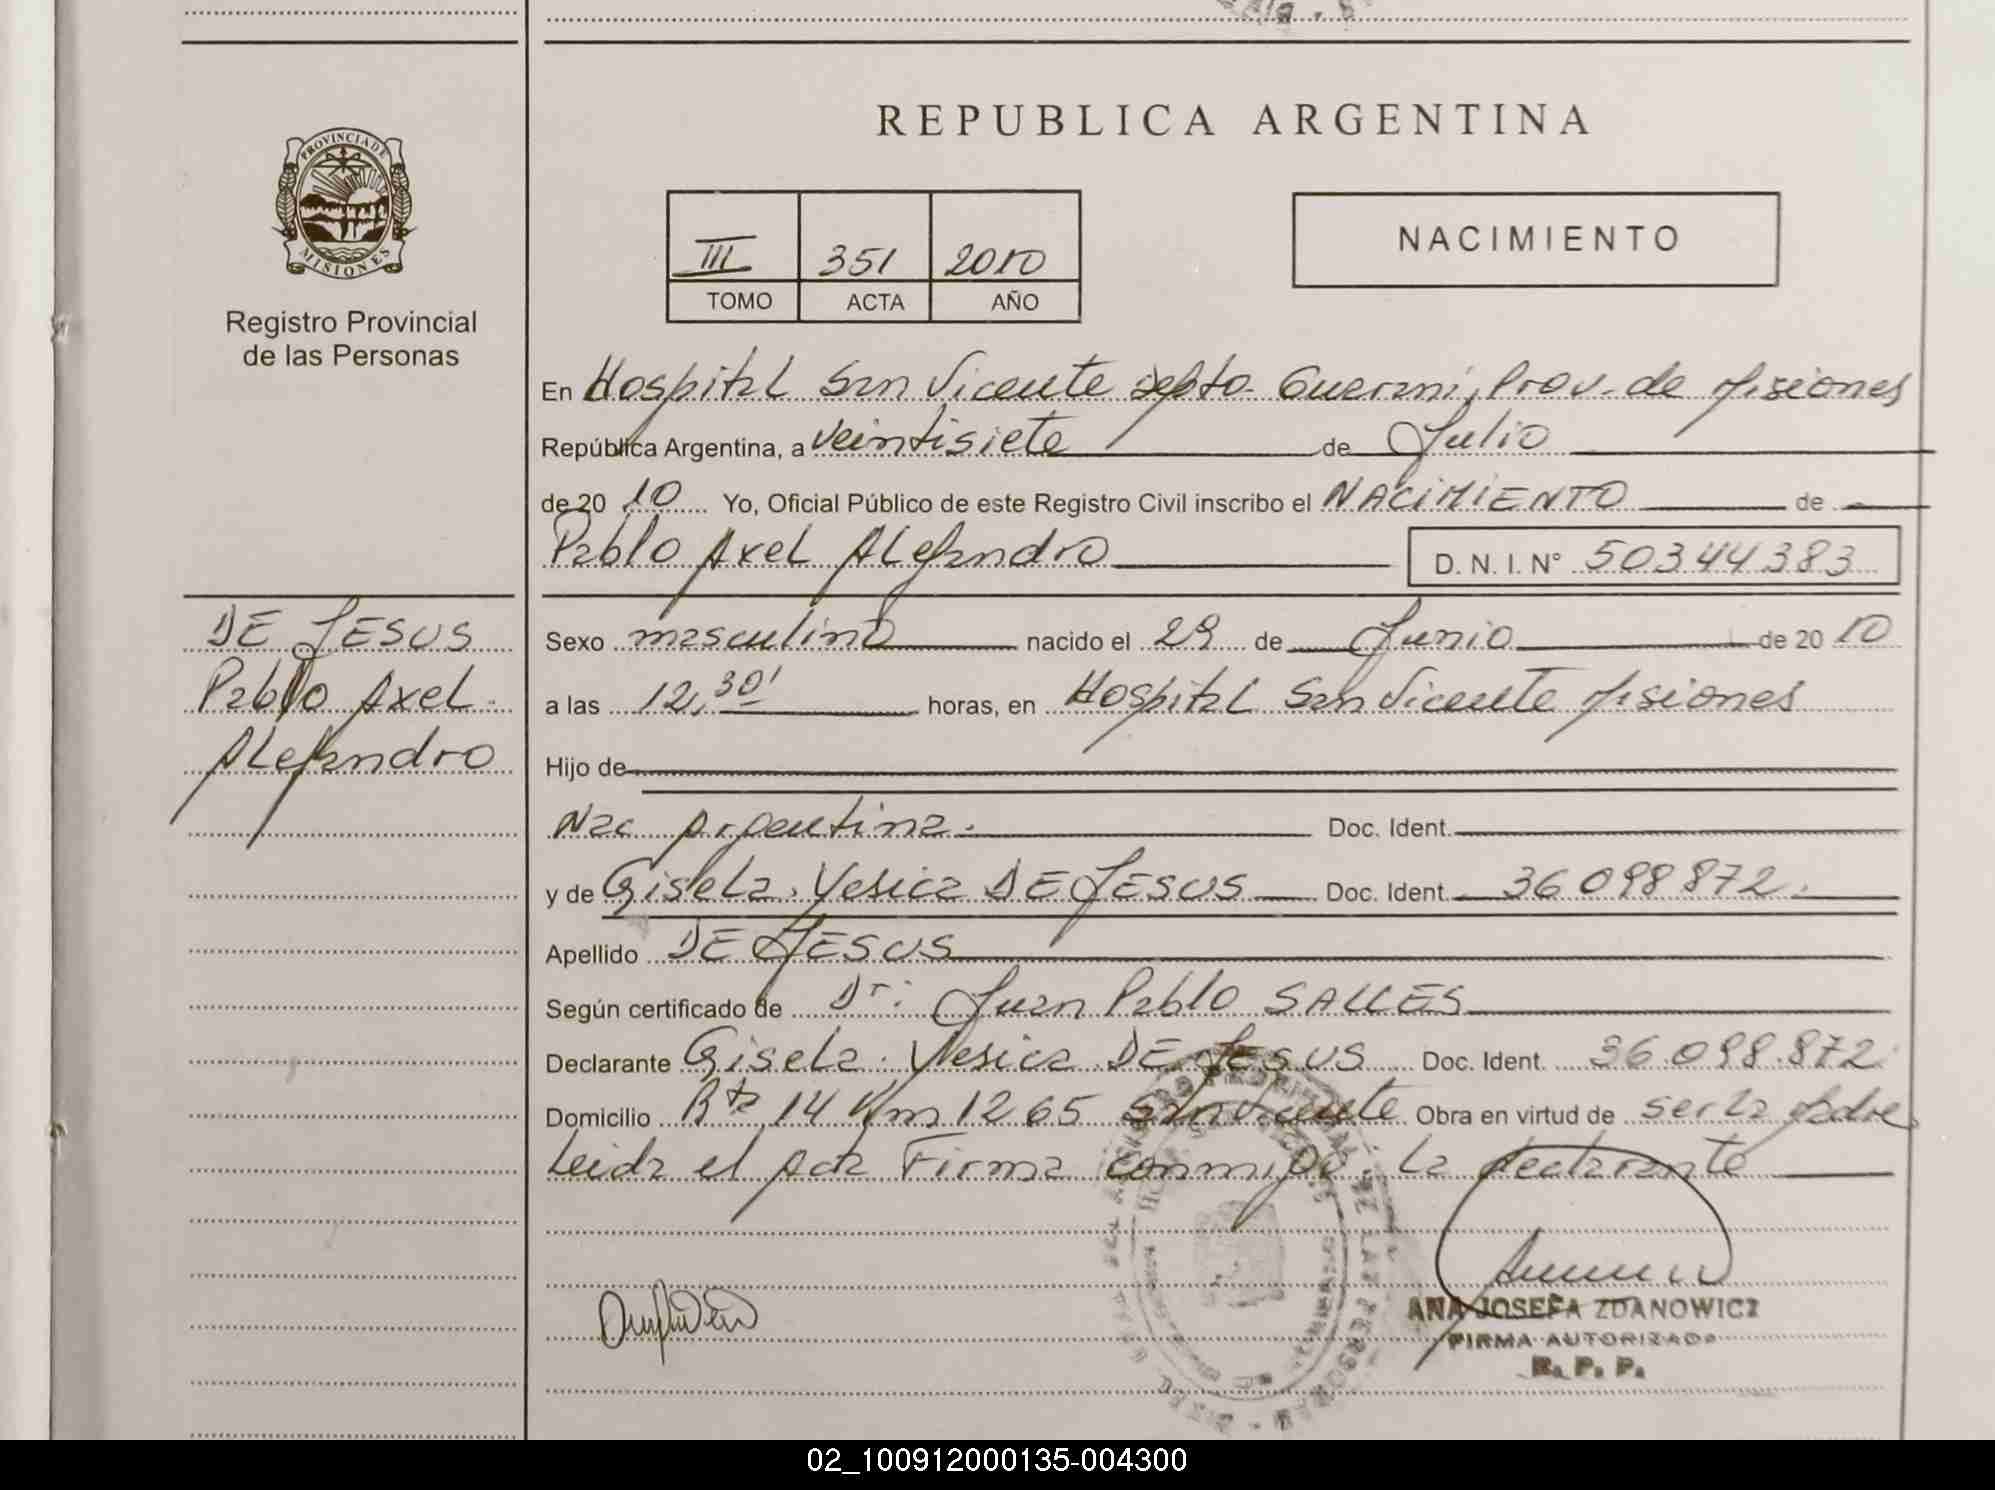 REPUBLICA ARGENTINA
PROVINCIA DE
MISIONES
Registro Provincial
de las Personas
III 351 2010
TOMO ACTA AÑO
NACIMIENTO
En Hospital San Vicente Depto. Guarani, Prov. de Misiones
República Argentina, a veintisiete de Julio
de 20 10 Yo, Oficial Público de este Registro Civil inscribo el NACIMIENTO de
Pablo Axel Alejandro D. N. I. N° 50344383
DE JESUS
Pablo Axel
Alejandro
Sexo masculino nacido el 29 de Junio de 20 10
a las 12,30' horas, en Hospital San Vicente Misiones
Hijo de
Nac Argentina. Doc. Ident.
y de Gisela Yesica DE JESUS Doc. Ident. 36.098872.
Apellido DE JESUS
Según certificado de Dr: Juan Pablo SALLES
Declarante Gisela Yesica DE JESUS Doc. Ident. 36.098.872
Domicilio Rta 14 Km 1265 San Vicente Obra en virtud de ser la Madre
Leida el Acta Firma conmigo: la declarante
ANA JOSEFA ZDANOWICZ
FIRMA AUTORIZADA
R. P. P.
02_100912000135-004300